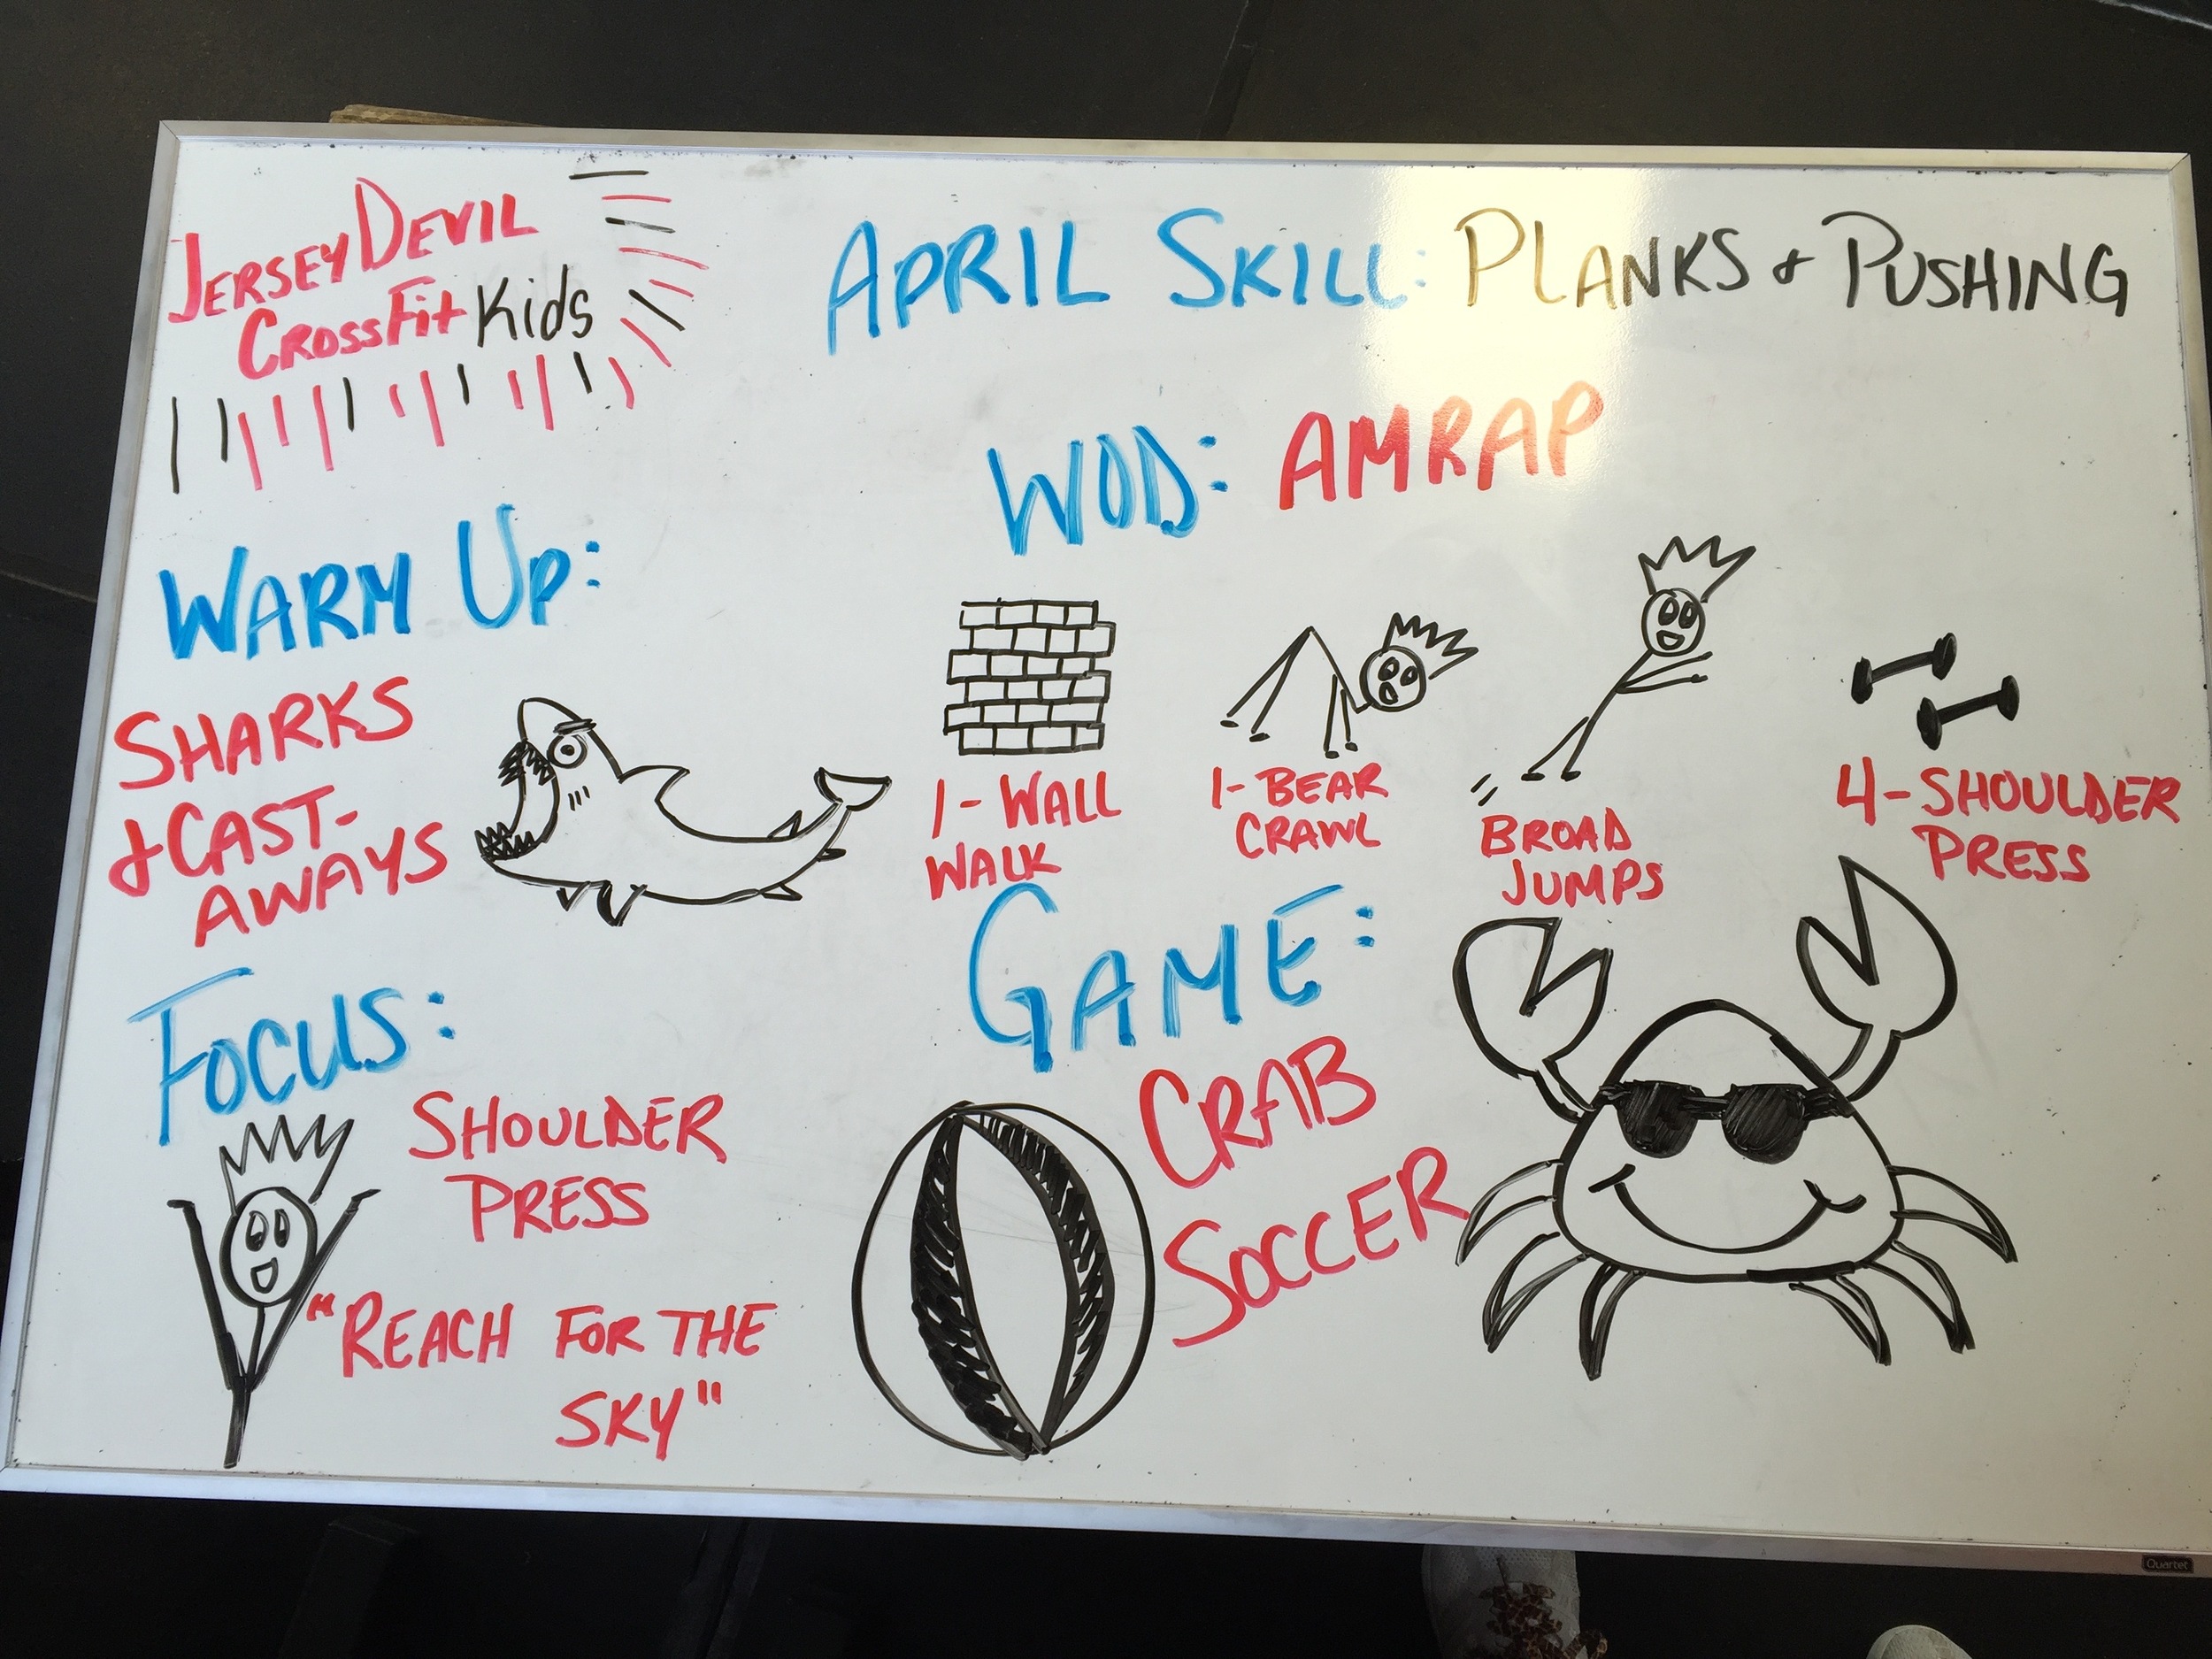 JERSEY DEVIL
CROSSFit Kids
APRIL SKILL: PLANKS & PUSHING
WARM UP:
SHARKS
& CAST-
AWAYS
FOCUS:
SHOULDER
PRESS
"REACH FOR THE
SKY"
WOD: AMRAP
1-WALL
WALK
1-BEAR
CRAWL
BROAD
JUMPS
4-SHOULDER
PRESS
GAME:
CRAB
SOCCER
Quartet